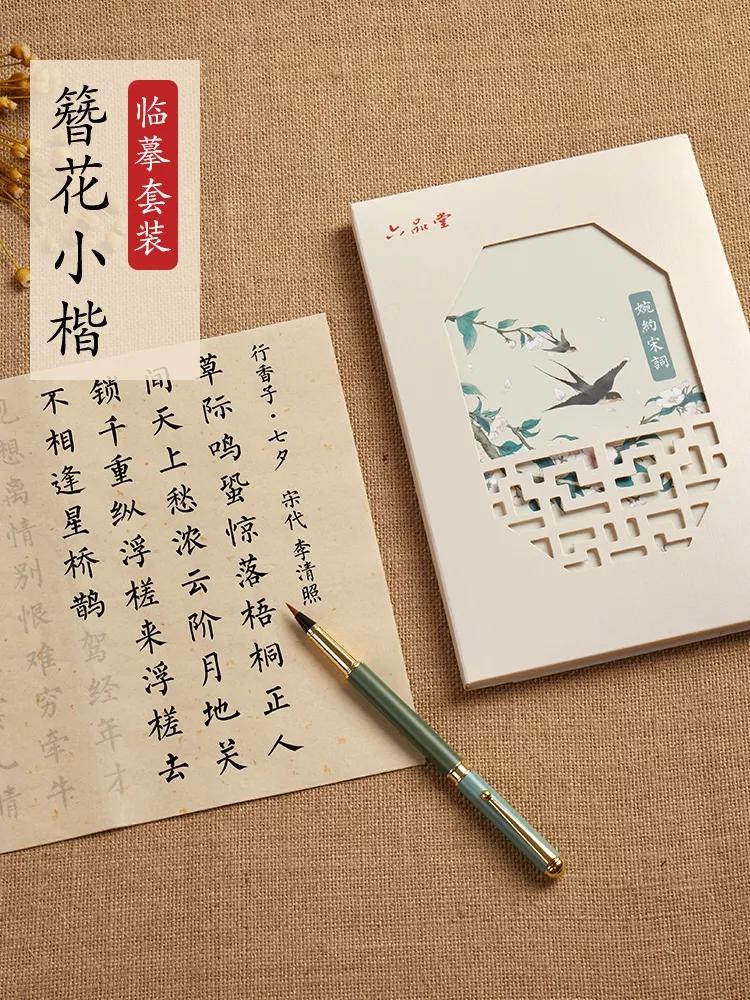 簪花小楷
临摹套装
六品堂
婉約宋詞
行香子·七夕 宋代 李清照
草际鸣蛩惊落梧桐正人
间天上愁浓云阶月地关
锁千重纵浮槎来浮槎去
不相逢星桥鹊驾经年才
见想离情别恨难穷牵牛